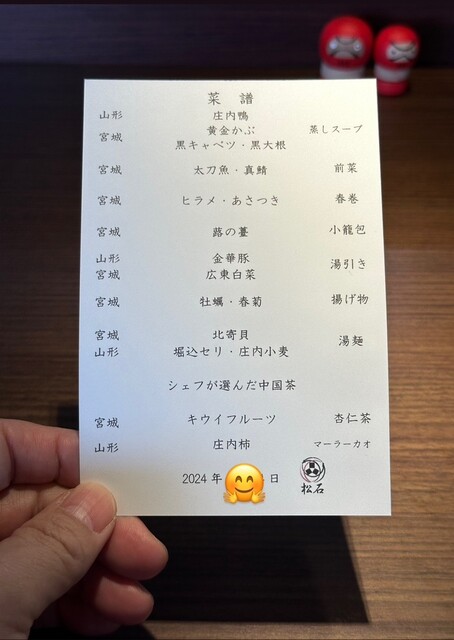 菜 譜
山形 庄内鴨
宮城 黄金かぶ 蒸しスープ
黒キャベツ・黒大根
宮城 太刀魚・真鯖 前菜
宮城 ヒラメ・あさつき 春巻
宮城 蕗の薹 小籠包
山形 金華豚 湯引き
宮城 広東白菜
宮城 牡蠣・春菊 揚げ物
宮城 北寄貝 湯麺
山形 堀込セリ・庄内小麦
シェフが選んだ中国茶
宮城 キウイフルーツ 杏仁茶
山形 庄内柿 マーラーカオ
2024 年 日
松石